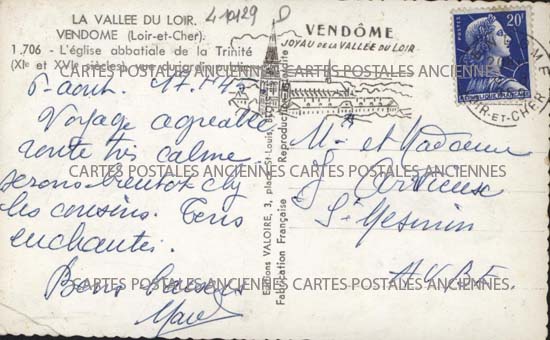 LA VALLEE DU LOIR.
VENDOME (Loir-et-Cher).
1.706 - L'église abbatiale de la Trinité
(XIe et XVIe siècles), vue du jardin public
410129
VENDÔME
JOYAU DE LA VALLÉE DU LOIR
POSTES
20F
LOIR-ET-CHER
6 août. 17h
Voyage agréable
route très calme
serons bientôt chez
les cousins. Tous
enchantés.
Bons baisers
Editions VALOIRE, 3, place St-Louis, BLOIS
Fabrication Française Reproduction interdite
Mr et Madame
J.
St Mesmin
AUBE.
CARTES POSTALES ANCIENNES CARTES POSTALES ANCIENNES
CARTES POSTALES ANCIENNES CARTES POSTALES ANCIENNES
CARTES POSTALES ANCIENNES CARTES POSTALES ANCIENNES
CARTES POSTALES ANCIENNES CARTES POSTALES ANCIENNES